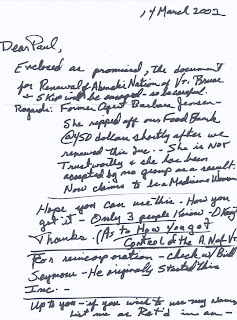 14 March 2002
Dear Paul,
Enclosed as promised, the document
for Renewal of Abenaki Nation of Vt. Bruce
& Skip will be enraged - so be careful.
Regards: Former Agent Barbara Jensen -
She ripped off our Food Bank
@ 450 dollars shortly after we
renewed this Inc. - She is NOT
Trustworthy & she has been
accepted by no group as a result.
Now claims to be a Medicine Woman
Hope you can use this - How you
got it - Only 3 people Know -
Thanks (As to How you got
Control of the A. N. of Vt.
For reincorporation - check w/ Bill
Seymour - He originally started this
Inc. -
Up to you - if you want to use my name
list me as Ret'd in an -